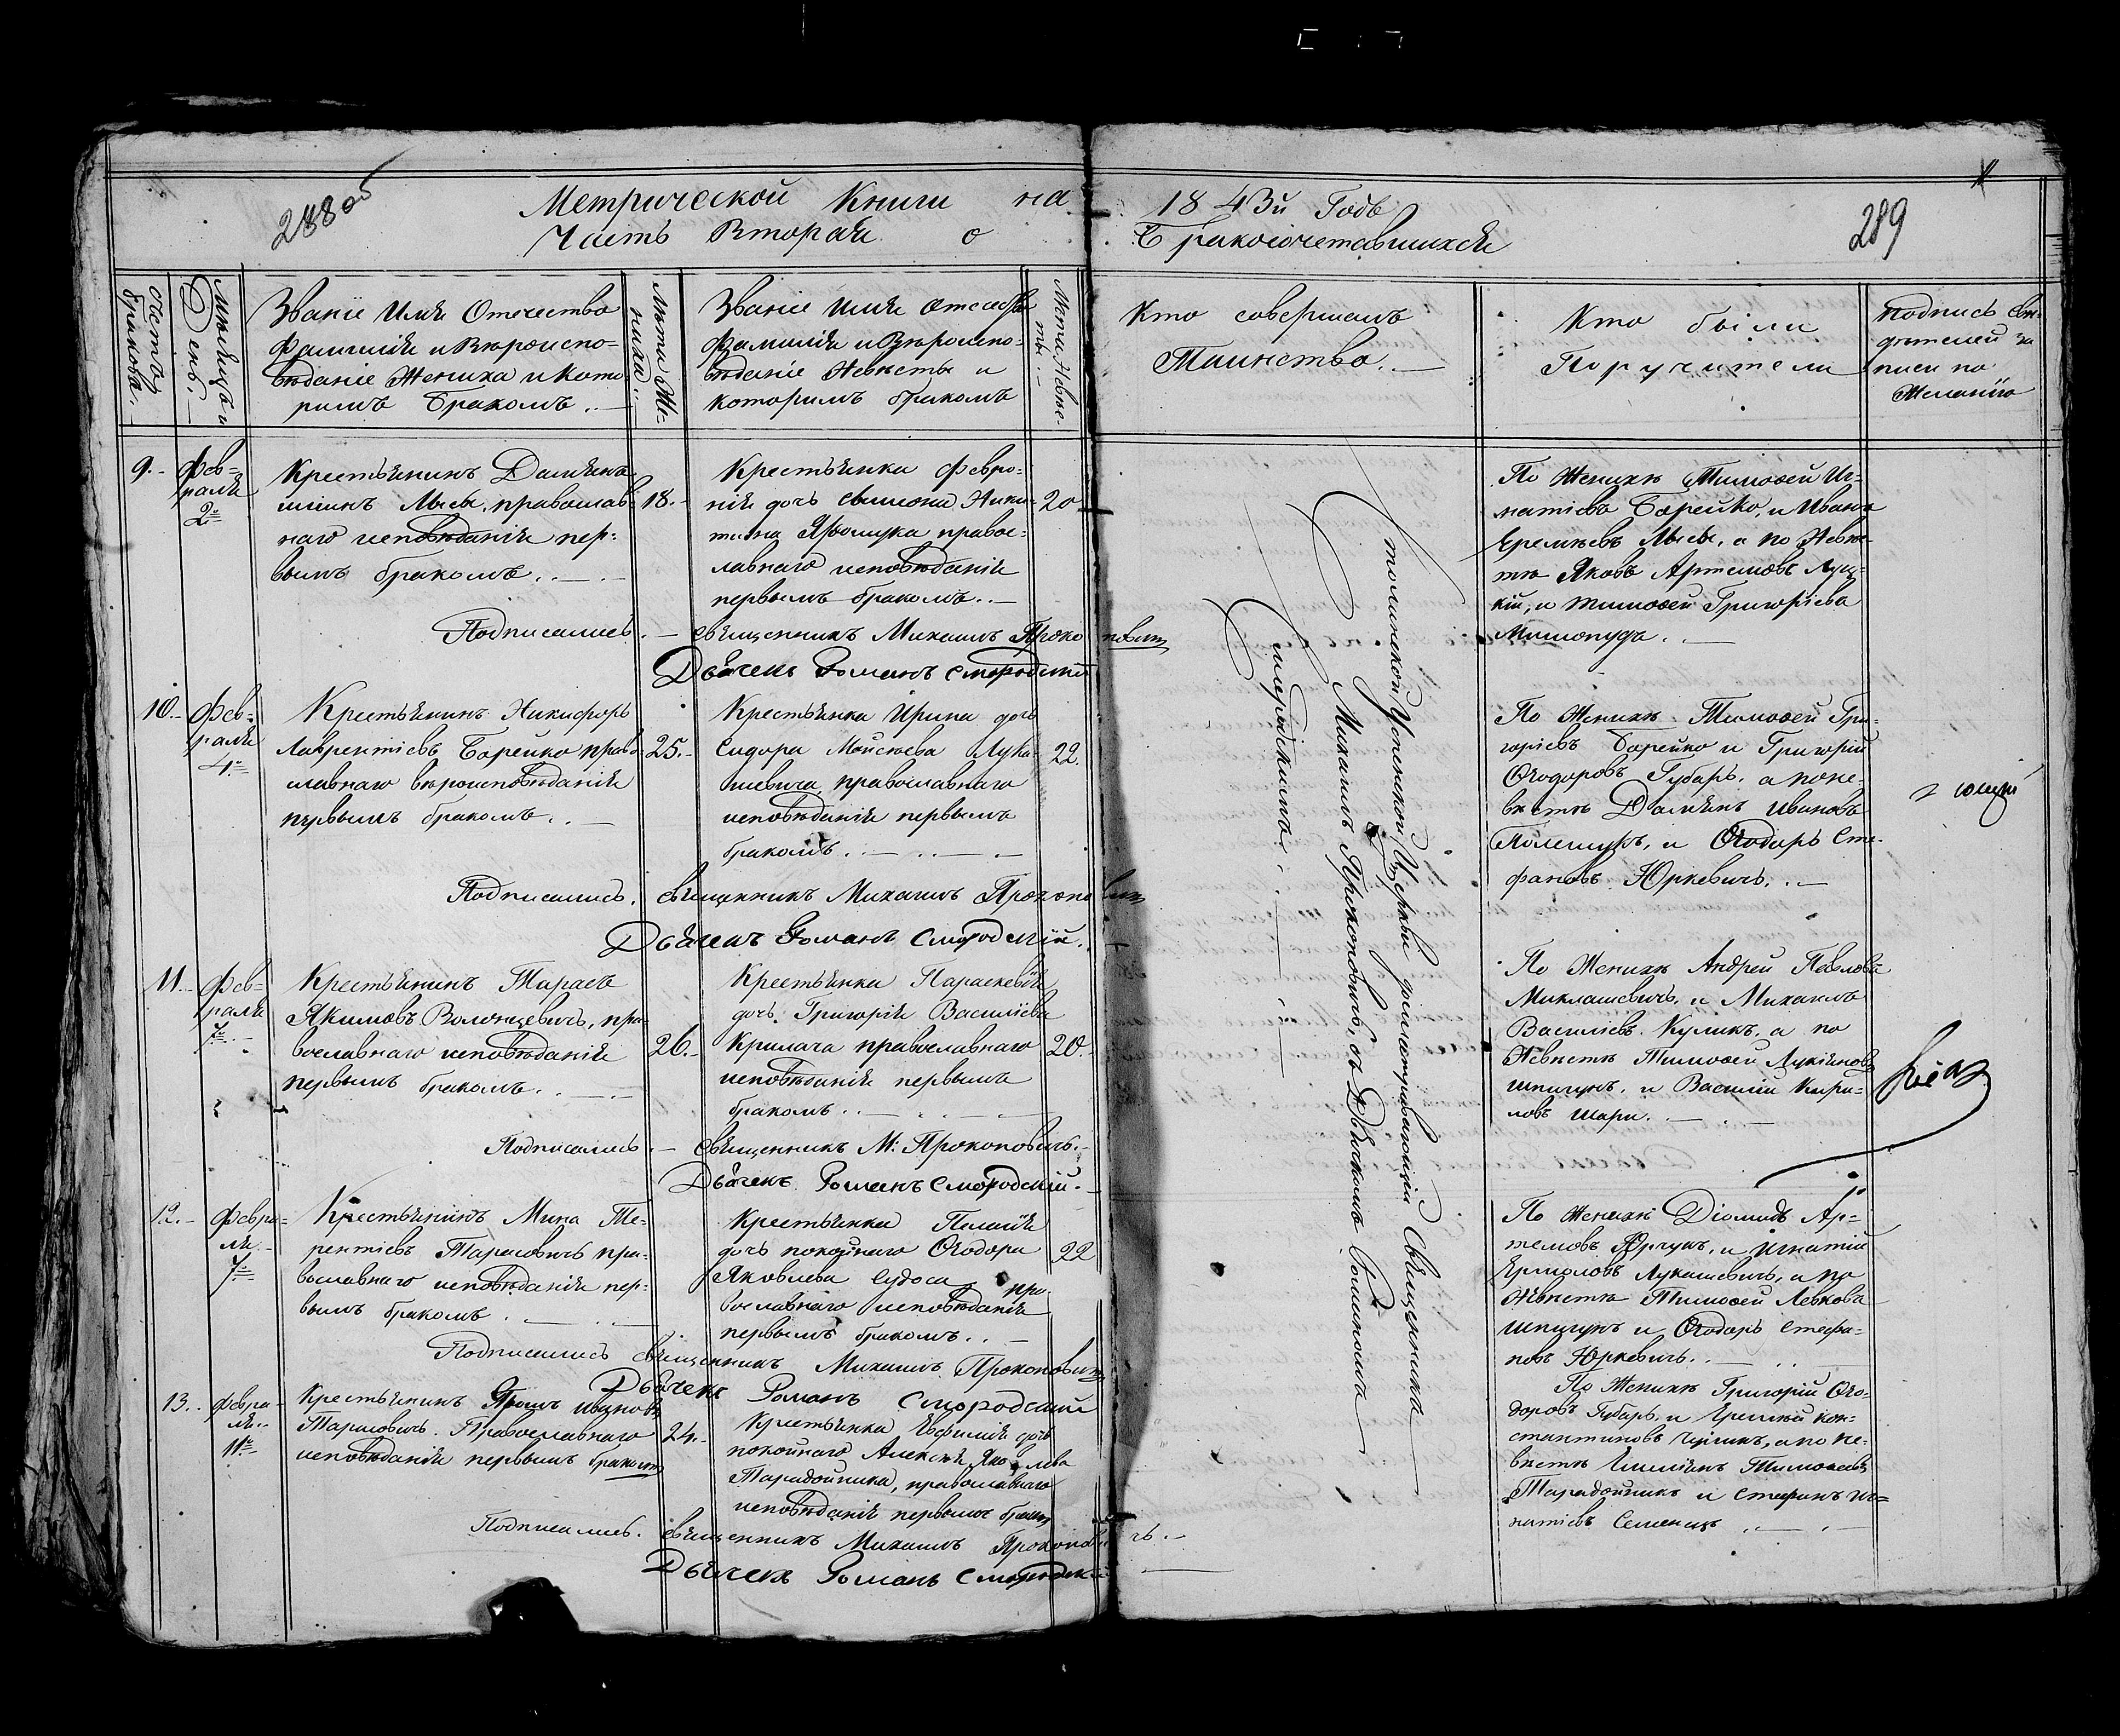 288об
Метрической Книги на 1843й Годъ
289
Часть Вторая о Бракосочетавшихся
Счетъ браковъ.
Мѣсяцъ и День.
Званіе Имя Отечество
Фамилія и Вѣроиспо-
вѣданіе Жениха и кото-
римъ Бракомъ.
Лѣта Же-
ниха.
Званіе Имя Отечество
Фамилія и Вѣроиспо-
вѣданіе Невѣсты и
которимъ бракомъ
Лѣта Невѣс-
ты.
Кто совершалъ
Таинство.
Кто были
Поручители
Подпись сви-
дѣтелей за
писи по
Желанію
9.
Фев=
раля
2.
Крестьянинъ Даміянъ
Лысы, православ-
наго исповѣданія пер-
вымъ бракомъ.
18.
Крестьянка Февро-
нія дочь Симиона Ники-
тина правос-
лавнаго исповѣданія
первымъ бракомъ.
20
По Женихѣ Тимофей Иг-
натіевъ Борейко, и Иванъ
Еремѣевъ Лысы, а по Невѣс-
тѣ Яковъ Артемовъ Луц-
кій, и Тимофей Григоріевъ
Подписались. Священникъ Михаилъ Прокоповичъ
Дьячекъ Романъ Смородскій
10.
Фев=
раля
4.
Крестьянинъ Никифоръ
Лаврентіевъ Борейко право
славнаго вѣроисповѣданія
первымъ бракомъ.
25.
Крестьянка Ирина дочь
Сидора Мойсѣева Лука-
шевича православнаго
исповѣданія первымъ
бракомъ.
22.
По Женихѣ Тимофей Гри-
горіевъ Борейко и Григорій
Ѳеодоровъ Губаръ, а по не-
вѣстѣ Даміянъ Ивановъ
Полещукъ, и Ѳеодоръ Сте-
фановъ Юркевичъ.
Подписались. Священникъ Михаилъ Прокоповичъ
Дьячекъ Романъ Смородскій.
11.
Фев=
раля
7.
Крестьянинъ Тарасъ
Якимовъ Волонцевичъ, пра-
вославнаго исповѣданія
первымъ бракомъ.
26.
Крестьянка Параскевія
дочь Григорія Василіева
Крилача православнаго
исповѣданія первымъ
бракомъ.
20.
По Женихѣ Андрей Павловъ
Миклашевичъ, и Михаилъ
Василіевъ Куликъ, а по
Невѣстѣ Тимофей Лукіяновъ
Шпигунъ, и Василій Кири-
ловъ Шари.
Подписались. Священникъ М: Прокоповичъ.
Дьячекъ Романъ Смородскій.
12.
Февра=
ля
7.
Крестьянинъ Мина Те-
рентіевъ Тарасовичъ пра-
вославнаго исповѣданія пер-
вымъ бракомъ.
Крестьянка Пелагія
дочь покойнаго Ѳеодора
Яковлева Судоса пра-
вославнаго исповѣданія
первымъ бракомъ.
22
По Женихѣ Діомидъ Ар-
темовъ и Игнатій
Ермоловъ Лукашевичъ, а по
Невѣстѣ Тимофей Левковъ
Шпигунъ и Ѳеодоръ Стефа-
новъ Юркевичъ.
Подписались Священникъ Михаилъ Прокоповичъ
Дьячекъ Романъ Смородскій
13.
Февра-
ля.
11.
Крестьянинъ Ивановъ
Тарасовичъ. Православнаго
исповѣданія первымъ бракомъ
24.
Крестьянка Евфимія дочь
покойнаго Алексѣя Яковлева
Тарадойника, православнаго
исповѣданія первымъ бракомъ
По Женихѣ Григорій Ѳео-
доровъ Губаръ, и Еремѣй Кон-
стантиновъ а по не-
вѣстѣ Тимофеевъ
Тарадойникъ и Стефанъ Иг-
натіевъ Семенецъ
Подписались. Священникъ Михаилъ Прокоповичъ.
Дьячекъ Романъ Смородскій
Столинской Успенской Церкви Священникъ
Михаилъ Прокоповичъ, съ Дьячкомъ Романомъ
Смородскимъ.